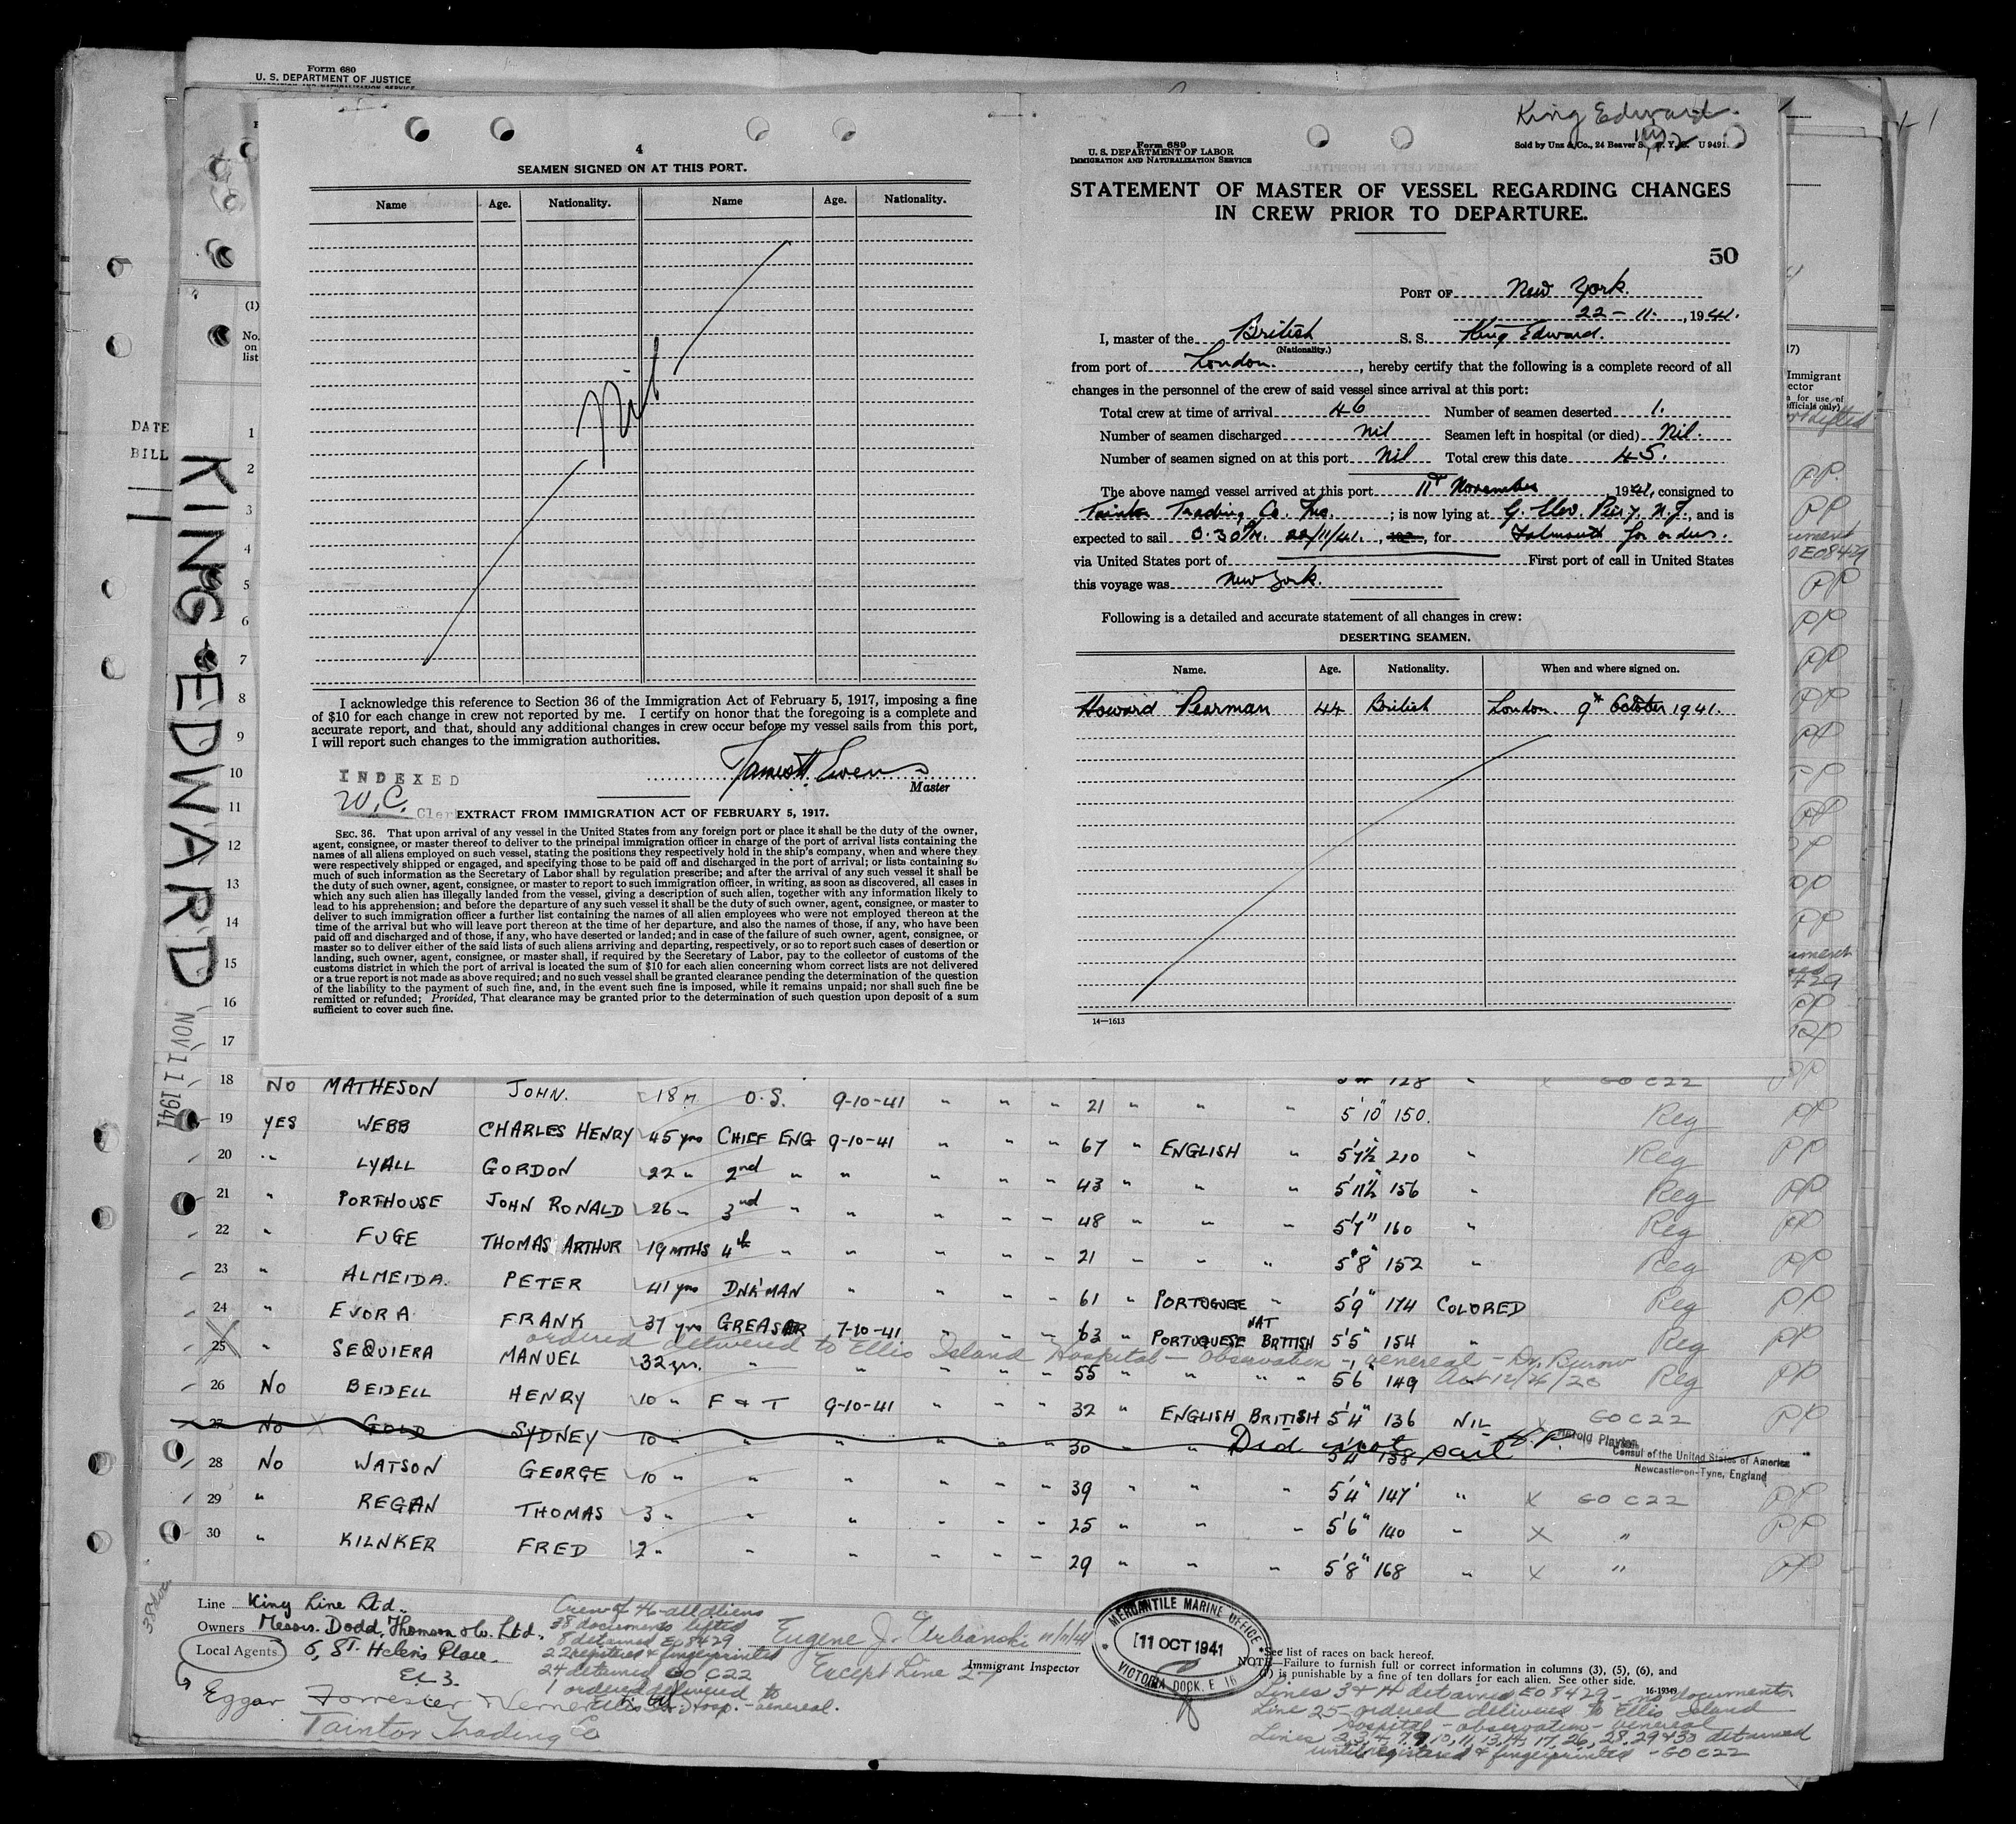 Form 680
U. S. DEPARTMENT OF JUSTICE
4
SEAMEN SIGNED ON AT THIS PORT.
Name Age. Nationality. Name Age. Nationality.
Nil
I acknowledge this reference to Section 36 of the Immigration Act of February 5, 1917, imposing a fine
of $10 for each change in crew not reported by me. I certify on honor that the foregoing is a complete and
accurate report, and that, should any additional changes in crew occur before my vessel sails from this port,
I will report such changes to the immigration authorities.
INDEXED
W.C. Clerk
Master
EXTRACT FROM IMMIGRATION ACT OF FEBRUARY 5, 1917.
SEC. 36. That upon arrival of any vessel in the United States from any foreign port or place it shall be the duty of the owner,
agent, consignee, or master thereof to deliver to the principal immigration officer in charge of the port of arrival lists containing the
names of all aliens employed on such vessel, stating the positions they respectively hold in the ship's company, when and where they
were respectively shipped or engaged, and specifying those to be paid off and discharged in the port of arrival; or lists containing so
much of such information as the Secretary of Labor shall by regulation prescribe; and after the arrival of any such vessel it shall be
the duty of such owner, agent, consignee, or master to report to such immigration officer, in writing, as soon as discovered, all cases in
which any such alien has illegally landed from the vessel, giving a description of such alien, together with any information likely to
lead to his apprehension; and before the departure of any such vessel it shall be the duty of such owner, agent, consignee, or master to
deliver to such immigration officer a further list containing the names of all alien employees who were not employed thereon at the
time of the arrival but who will leave port thereon at the time of her departure, and also the names of those, if any, who have been
paid off and discharged and of those, if any, who have deserted or landed; and in case of the failure of such owner, agent, consignee, or
master so to deliver either of the said lists of such aliens arriving and departing, respectively, or so to report such cases of desertion or
landing, such owner, agent, consignee, or master shall, if required by the Secretary of Labor, pay to the collector of customs of the
customs district in which the port of arrival is located the sum of $10 for each alien concerning whom correct lists are not delivered
or a true report is not made as above required; and no such vessel shall be granted clearance pending the determination of the question
of the liability to the payment of such fine, and, in the event such fine is imposed, while it remains unpaid; nor shall such fine be
remitted or refunded; Provided, That clearance may be granted prior to the determination of such question upon deposit of a sum
sufficient to cover such fine.
King Edward.
Form 689
U. S. DEPARTMENT OF LABOR
IMMIGRATION AND NATURALIZATION SERVICE
Sold by Unz & Co., 24 Beaver S., N. Y. C. U 9491
STATEMENT OF MASTER OF VESSEL REGARDING CHANGES
IN CREW PRIOR TO DEPARTURE.
50
PORT OF New York.
22 - 11. , 1941.
I, master of the British S. S. King Edward.
(Nationality.)
from port of London. , hereby certify that the following is a complete record of all
changes in the personnel of the crew of said vessel since arrival at this port:
Total crew at time of arrival 46 Number of seamen deserted 1.
Number of seamen discharged nil Seamen left in hospital (or died) Nil.
Number of seamen signed on at this port Nil Total crew this date 45.
The above named vessel arrived at this port 11th November 1941, consigned to
Taintor Trading Co. Inc. ; is now lying at G. Elev. Pier 7. N.J., and is
expected to sail 0.30 22/11/41. , for Falmouth for orders.
via United States port of First port of call in United States
this voyage was New York.
Following is a detailed and accurate statement of all changes in crew:
DESERTING SEAMEN.
Name. Age. Nationality. When and where signed on.
Howard Pearman 44 British London. 9th October 1941.
14—1613
DATE
BILL
KING EDWARD
NOV 11 1941
(1)
No.
on
list
1
2
3
4
5
6
7
8
9
10
11
12
13
14
15
16
17
18 NO MATHESON JOHN. 18 m O.S. 9-10-41 " " " 21 " " " 5'10" 150. GO C22 PP
19 YES WEBB CHARLES HENRY 45 yrs CHIEF ENG 9-10-41 " " " 67 " ENGLISH " 5'7½ 210 " Reg PP
20 " LYALL GORDON 22 " 2nd " " " " " 43 " " " 5'11½" 156 " Reg PP
21 " PORTHOUSE JOHN RONALD 26 " 3rd " " " " " 48 " " " 5'7" 160 " Reg PP
22 " FUGE THOMAS ARTHUR 19 MTHS 4th " " " " " 21 " " " 5'8" 152 " Reg PP
23 " ALMEIDA. PETER 41 yrs DNK'MAN " " " " 61 " PORTUGUESE " 5'9" 174 COLORED Reg PP
24 " EVORA FRANK 37 yrs GREASER 7-10-41 " " " 63 " PORTUGUESE NAT BRITISH 5'5" 154 " Reg PP
ordered delivered to Ellis Island Hospital - observation - venereal -
25 SEQUIERA MANUEL 32 yrs. " " " " " 55 " " " " 5'6" 149 Reg PP
26 No BEIDELL HENRY 10 " F & T 9-10-41 " " " 32 " ENGLISH BRITISH 5'4" 136 NIL X GO C22 PP
27 No X GOLD SYDNEY 10 " " " " " " 30 " Did not sail 5'4" 138 H.P.
Harold Playter
Consul of the United States of America
Newcastle-on-Tyne, England
28 No WATSON GEORGE 10 " " " " " " 39 " " " 5'4" 147 " X GO C22 PP
29 " REGAN THOMAS 3 " " " " " " 25 " " " 5'6" 140 " X " PP
30 " KILNKER FRED 2 " " " " " " 29 " " " 5'8" 168 " X " PP
Line King Line Ltd.
Owners Messrs. Dodd, Thomson & Co. Ltd.,
Local Agents 6, St. Helens Place.
E.C.3.
Taintor Trading Co
Crew of 46 - all aliens
38 documents lifted
8 detained EO 8429
22 registered & fingerprinted
24 detained GO C22
1 ordered delivered to
Ellis Isl. Hosp. - venereal.
Eugene J. Urbanski 11/11/41
Except Line 27
Immigrant Inspector
MERCANTILE MARINE OFFICE
11 OCT 1941
VICTORIA DOCK. E 16
*See list of races on back hereof.
NOTE.—Failure to furnish full or correct information in columns (3), (5), (6), and
(7) is punishable by a fine of ten dollars for each alien. See other side.
16-19349
Lines 3 & 14 detained EO 8429 - no documents
Line 25 ordered delivered to Ellis Island
Hospital - observation - venereal
Lines 2, 3, 4, 7, 9, 10, 11, 13, 14, 17, 26, 28, 29 & 30 detained
until registered & fingerprinted - GO C22